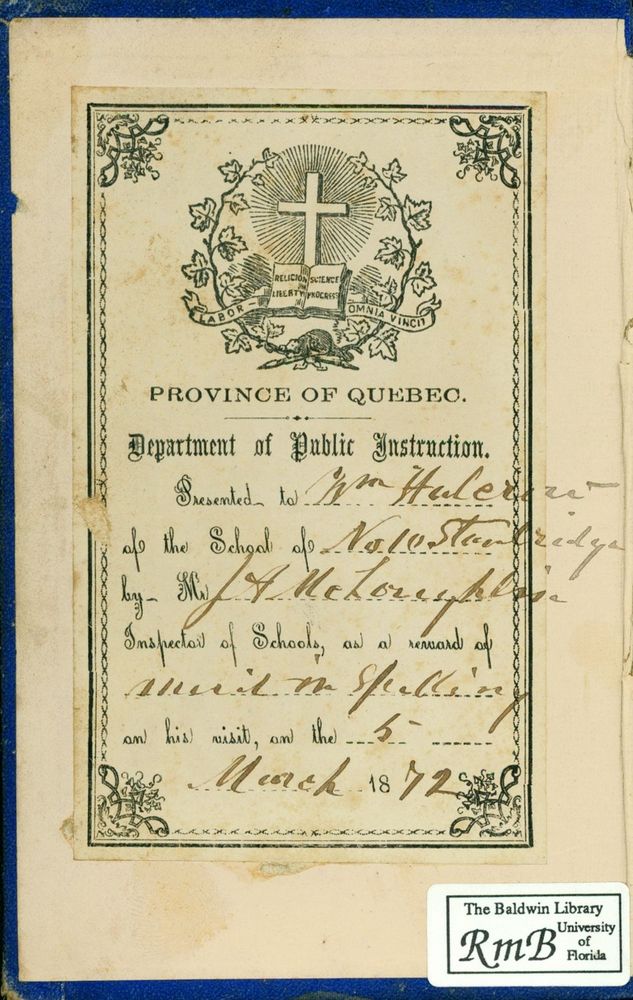 RELIGION SCIENCE
LIBERTY PROGRESS
LABOR OMNIA VINCIT
PROVINCE OF QUEBEC.
Department of Public Instruction.
Presented to Wm Halcrow
of the School of No 10 Stanbridge
by Mr J A McLoughlin
Inspector of Schools, as a reward of
merit in Spelling
on his visit, on the 5
March 1872
The Baldwin Library
RmB University of Florida